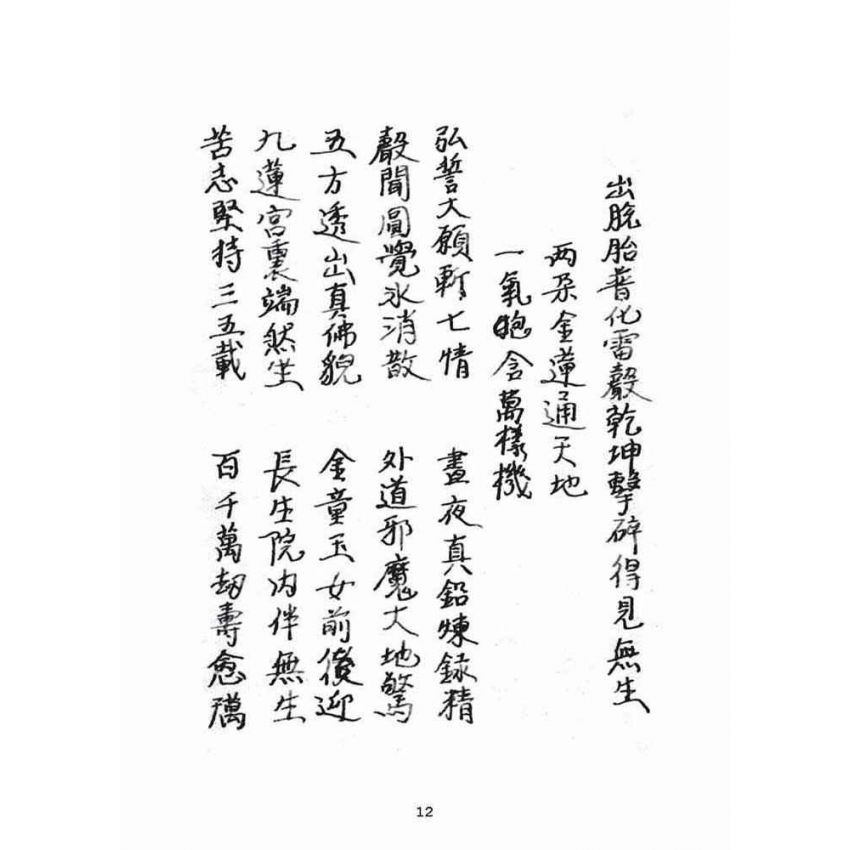 出脫胎普化雷聲乾坤擊碎得見無生
两朶金蓮通天地
一氣包含萬樣機
弘誓大願斬七情 晝夜真鉛煉錄精
聲聞圓覺氷消散 外道邪魔大地驚
五方透出真佛貌 金童玉女前後迎
九蓮宮裏端然坐 長生院內伴無生
苦志堅持三五載 百千萬劫壽愈
12